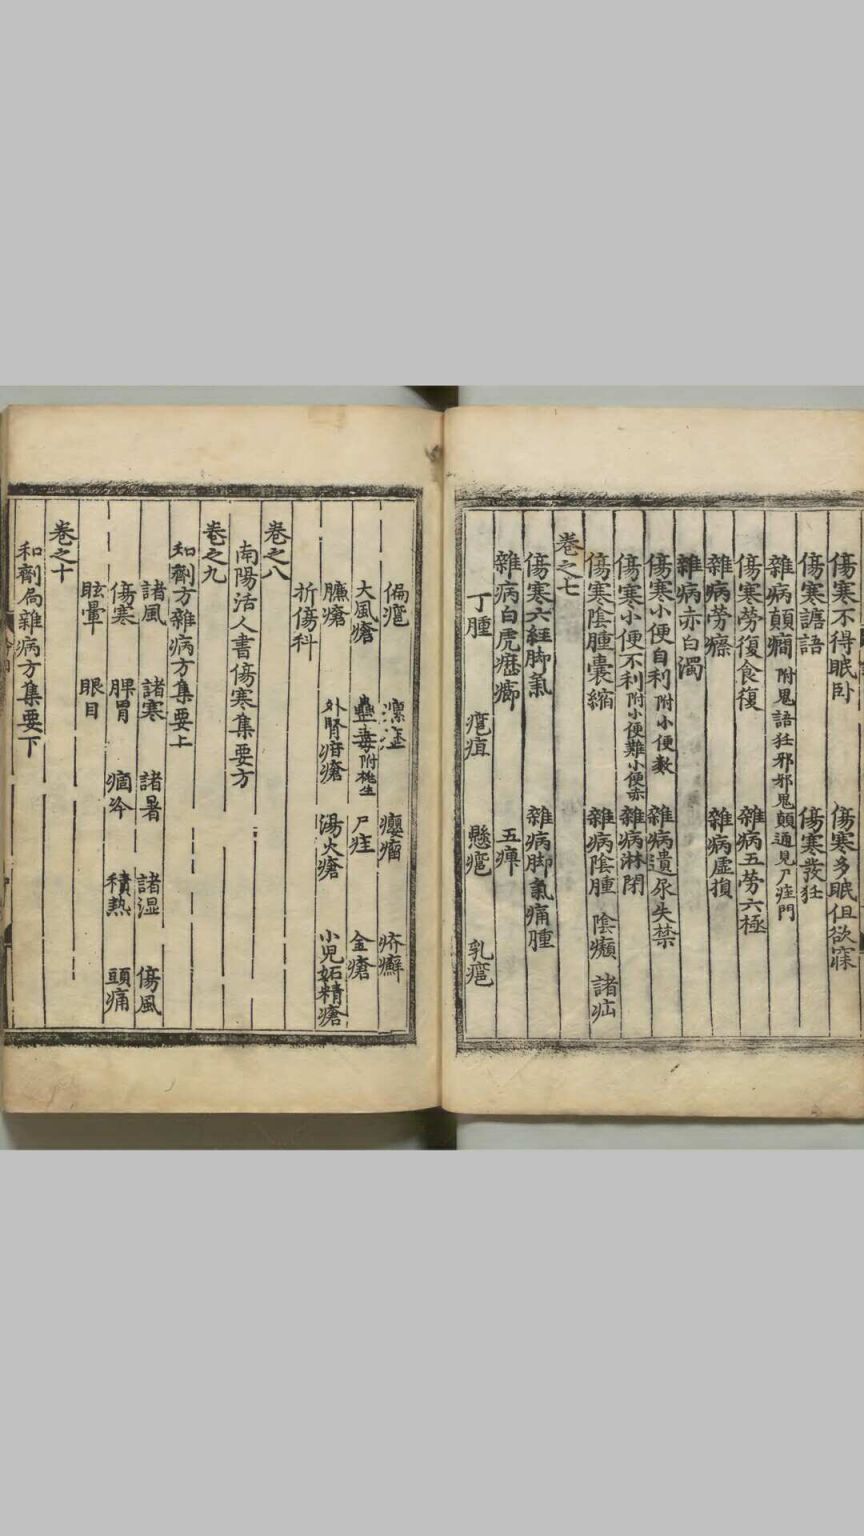 傷寒不得眠卧 傷寒多眠但欲寐
傷寒譫語 傷寒發狂
雜病顛癎 附鬼語狂邪邪鬼顛通見尸疰門
傷寒勞復食復 雜病五勞六極
雜病勞瘵 雜病虛損
雜病赤白濁
傷寒小便自利 附小便數 雜病遺尿失禁
傷寒小便不利 附小便難小便赤 雜病淋閉
傷寒陰腫囊縮 雜病陰腫 陰㿗 諸疝
卷之七
傷寒六經脚氣 雜病脚氣痛腫
雜病白虎癧癤 五痺
丁腫 癰疽 懸癰 乳癰
偏癰 瘰癧 癭瘤 疥癬
大風瘡 蠱毒 附桃生 尸疰 金瘡
臁瘡 外腎瘡 湯火瘡 小兒妬精瘡
折傷科
卷之八
南陽活人書傷寒集要方
卷之九
和劑方雜病方集要上
諸風 諸寒 諸暑 諸湿 傷風
傷寒 脾胃 痼冷 積熱 頭痛
眩暈 眼目
卷之十
和劑局雜病方集要下